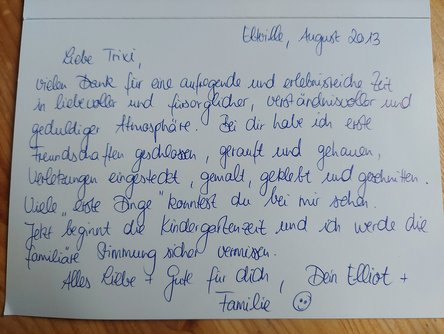 Eltville, August 2013
Liebe Trixi,
vielen Dank für eine aufregende und erlebnisreiche Zeit
in liebevoller und fürsorglicher, verständnisvoller und
geduldiger Atmosphäre. Bei dir habe ich erste
Freundschaften geschlossen, gerauft und gehauen,
Verletzungen eingesteckt, gemalt, geklebt und geschnitten.
Viele "erste Dinge" konntest du bei mir sehen.
Jetzt beginnt die Kindergartenzeit und ich werde die
familiäre Stimmung sicher vermissen.
Alles Liebe + Gute für dich, Dein Elliot +
Familie ☺